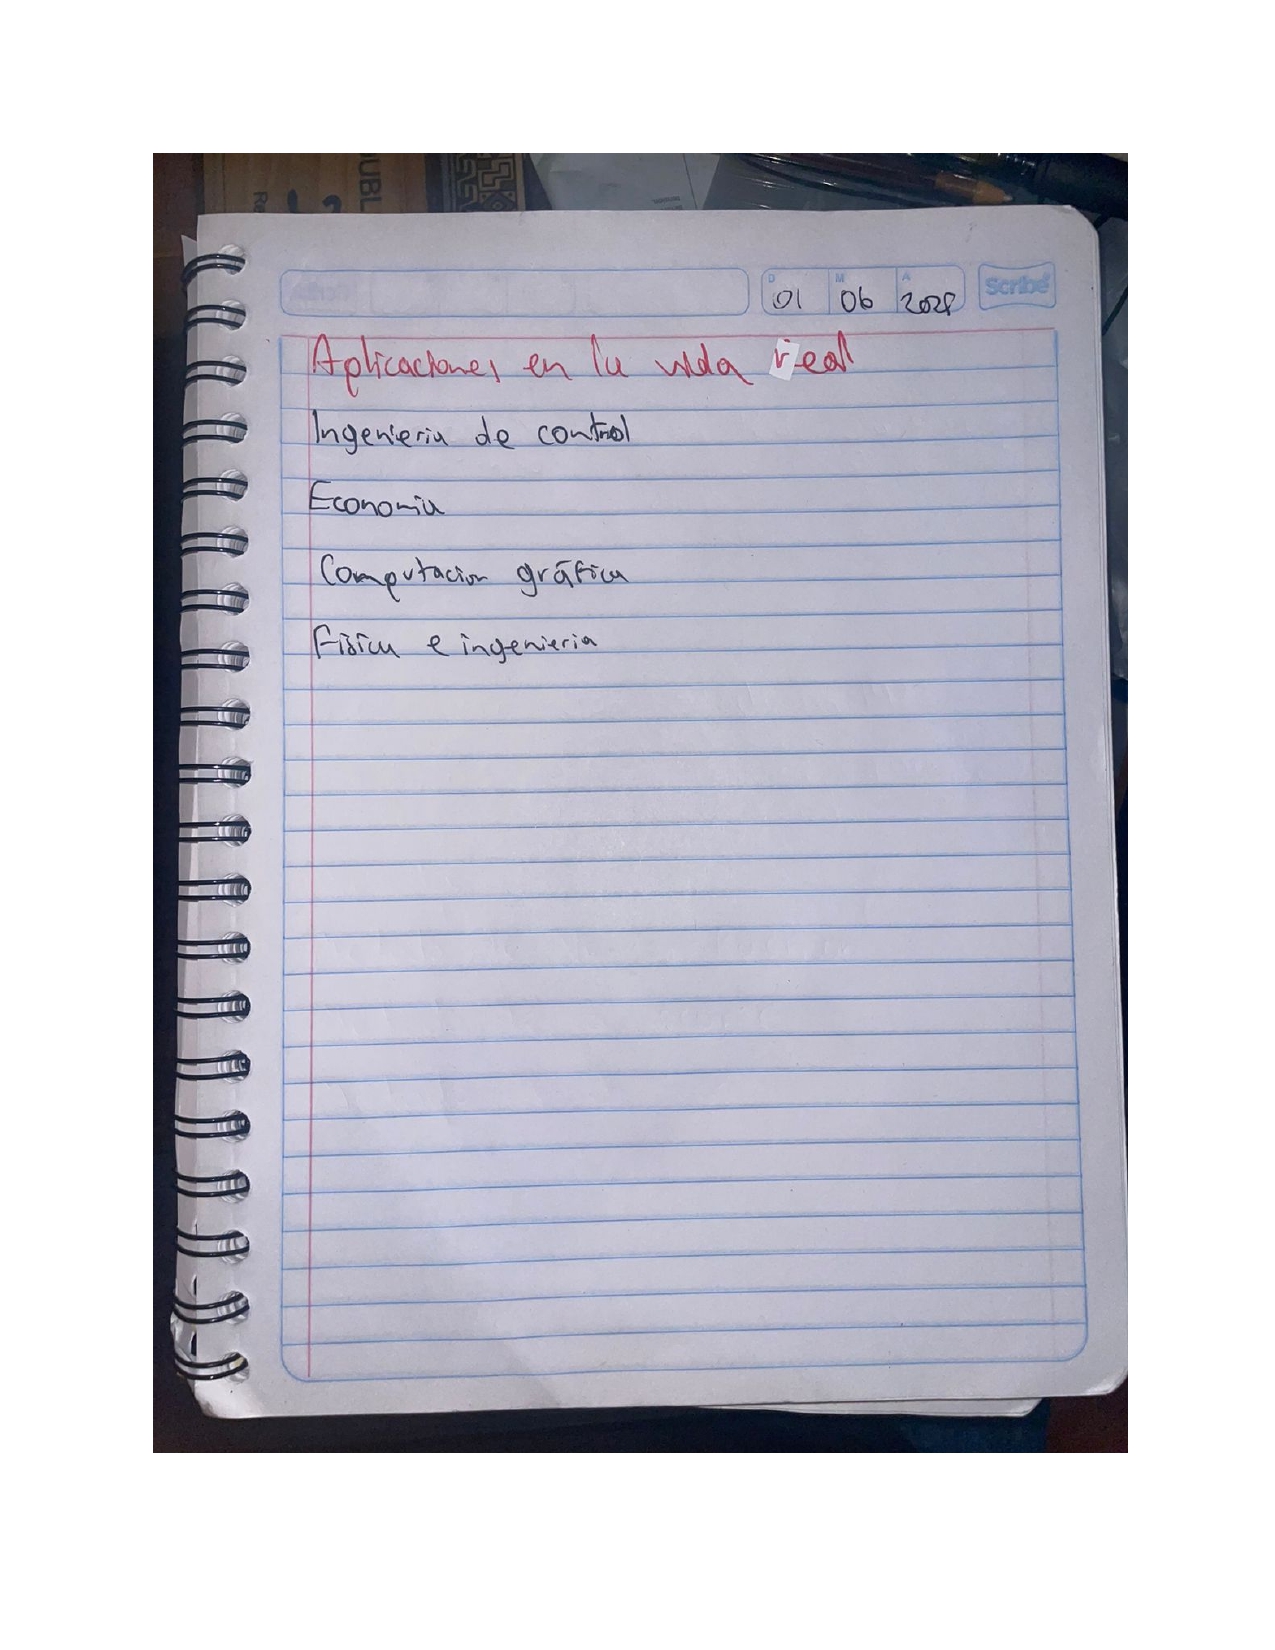 UBL
Re
D M A Scribe
01 06 2028
Aplicaciones en la vida real
Ingenieria de control
Economia
Computacion gráfica
Fisica e ingenieria